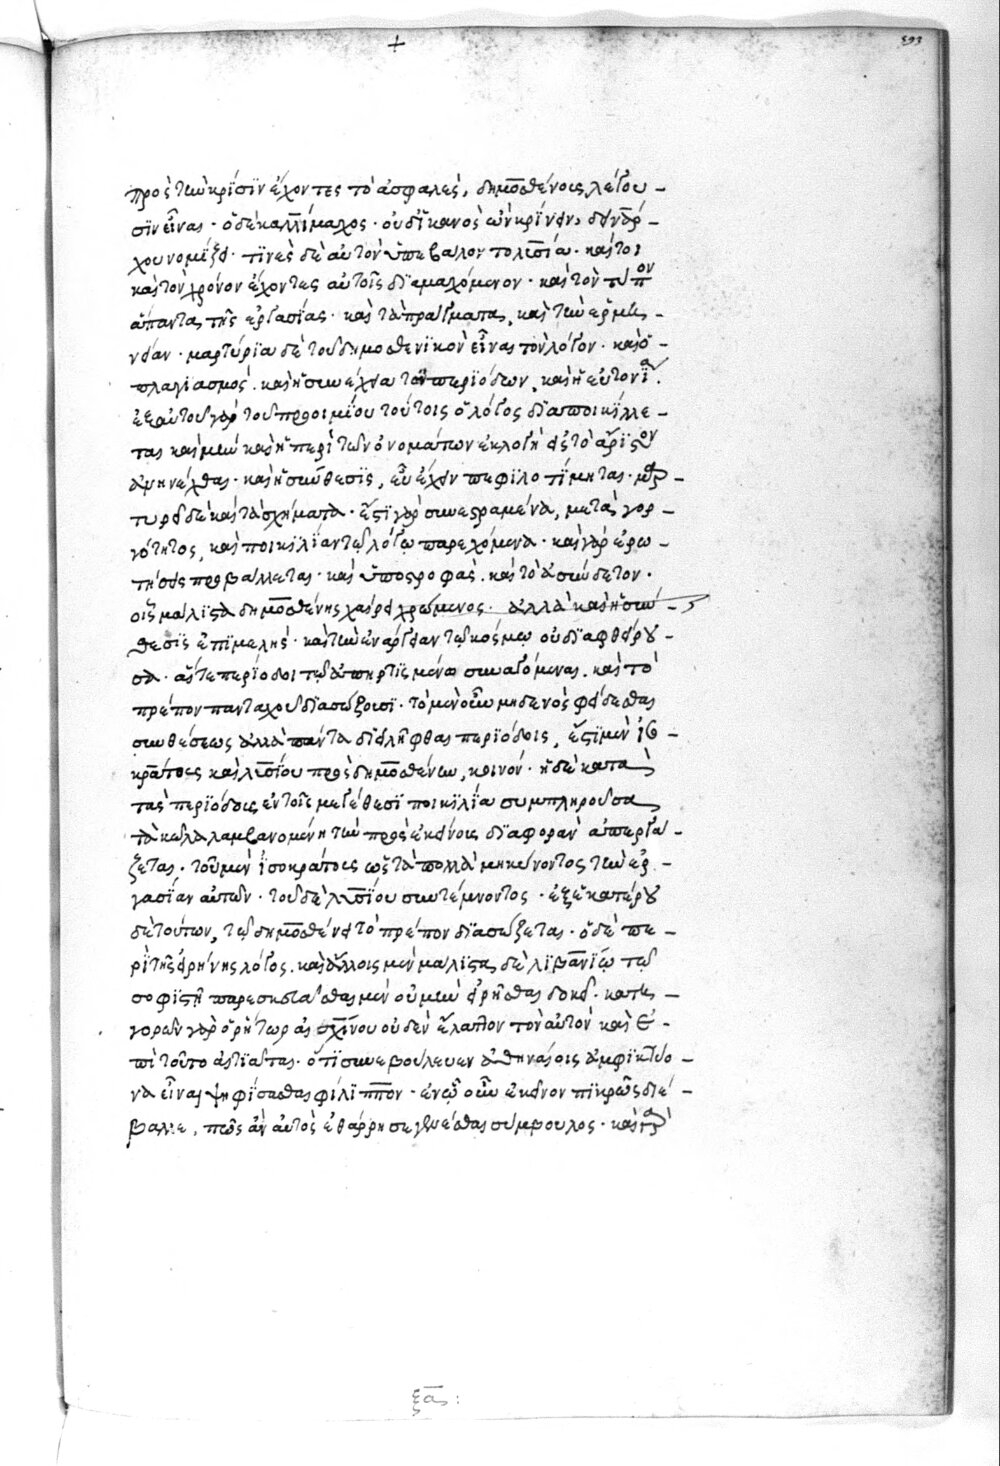 393
πρὸς τὴν κρίσϊν ἔχοντες τὸ ἀσφαλὲς, δημοσθένους λέγου -
σϊν εἶναι · ὁ δὲ καλλίμαχος · οὐδ' ἱκανὸς ὢν κρίνειν, δεινάρ -
χου νομίζει · τϊνὲς δὲ αὐτὸν ὑπέβαλον τῶ λυσία · καίτοι
καὶ τὸν χρόνον ἔχοντες αὐτοῖς δϊαμαχόμενον · καὶ τὸν τύπον
ἅπαντα τῆς ἐργασίας · καὶ τὰ πράγματα, καὶ τὴν ἑρμη -
νείαν · μαρτύρϊα δὲ τοῦ δημοσθενϊκὸν εἶναι τὸν λόγον · καὶ ὁ -
πλαγϊασμός · καὶ ἡ συνέχεια τῶν περϊόδων, καὶ ἡ εὐτονία.
ἐξ αὐτοῦ γὰρ τοῦ προοιμίου τούτοις ὁ λόγος δϊαποικίλλε -
ται καὶ μὴν καὶ ἡ περὶ τῶν ὀνομάτων ἐκλογὴ εἰς τὸ ἄρϊστον
διηνέχθαι · καὶ ἡ σύνθεσϊς, εὖ ἔχειν πεφϊλοτίμηται · μαρ -
τυρεῖ δὲ καὶ τὰ σχήματα · ἔστϊ γὰρ συνεστραμένα, μετὰ γορ -
γότητος, καὶ ποικϊλίαν τῶ λόγω παρεχόμενα · καὶ γὰρ ἐρω -
τήσεις προβάλλεται · καὶ ὑποστροφὰς · καὶ τὸ ἀσύνδετον ·
οἷς μάλϊστα δημοσθένης χαίρει χρώμενος · ἀλλὰ καὶ ἡ σύν -
θεσϊς ἐπϊμελὴς · καὶ τὴν ἐνάργειαν τῶ κόσμω οὐ δϊαφθείρου -
σα · αἵ τε περίοδοι τῶ ἀπηρτϊσμένω συναγόμεναι · καὶ τὸ
πρέπον πανταχοῦ δϊασώζουσϊ · τὸ μὲν οὖν μηδενὸς φείδεσθαι
συνθέσεως ἀλλὰ πάντα δϊειλῆφθαι περϊόδοις, ἔστϊ μὲν ἰσο -
κράτους καὶ λυσίου πρὸς δημοσθένην, κοινόν · ἡ δὲ κατὰ
τὰς περϊόδους ἐν τοῖς μεγέθεσϊ ποικϊλία συμπληροῦσα
τὰ κῶλα λαμβανομένη τὴν πρὸς ἐκείνους δϊαφορὰν ἀπεργά -
ζεται · τοῦ μὲν ἰσοκράτους ὡς τὰ πολλὰ μηκύνοντος τὴν ἐρ -
γασίαν αὐτῶν · τοῦ δὲ λυσίου συντέμνοντος · ἐξ ἑκατέρου
δὲ τούτων, τῶ δημοσθένει τὸ πρέπον δϊασώζεται · ὁ δὲ πε -
ρὶ τῆς εἰρήνης λόγος · καὶ ἄλλοις μὲν μάλϊστα δὲ λϊβανίω τῶ
σοφϊστῆ παρεσκευάσθαι μὲν οὐ μὴν εἰρῆσθαι δοκεῖ · κατη -
γορῶν γὰρ ὁ ῥήτωρ αἰσχίνου οὐδὲν ἔλαττον τὸν αὐτὸν καὶ ἐ -
πὶ τοῦτο αἰτϊᾶται · ὅτϊ συνεβούλευεν ἀθηναίοις ἀμφϊκτύο -
να εἶναι ψηφίσασθαι φίλϊππον · ἐν ᾧ οὖν ἐκεῖνον πϊκρῶς διέ -
βαλλε, πῶς ἂν αὐτὸς ἐθάρρησε γενέσθαι σύμβουλος · καὶ
ξας :